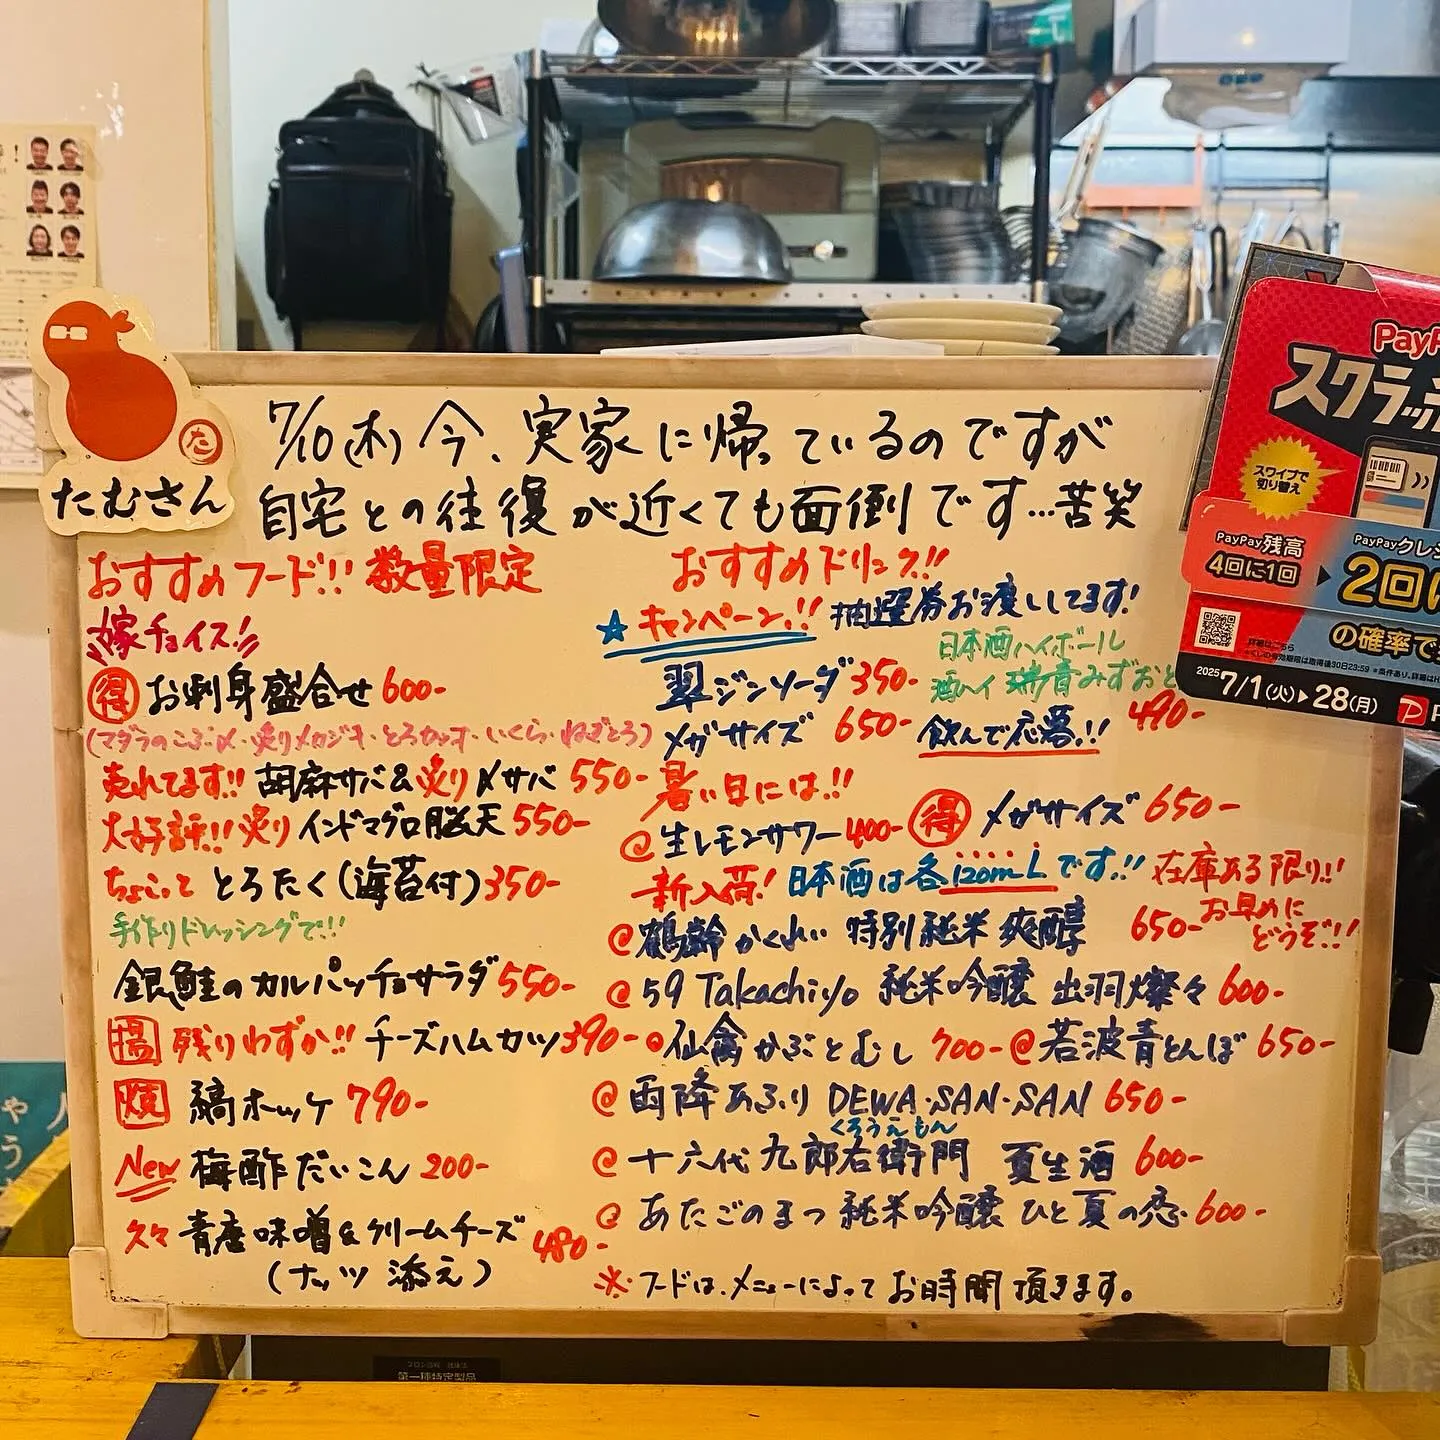 たむさん
た
7/10(木)今、実家に帰っているのですが
自宅との往復が近くても面倒です…苦笑
おすすめフード!! 数量限定
嫁チョイス!!
得 お刺身盛合せ 600-
(マダラのこぶ〆・炙りメカジキ・とろカツオ・いくら・ねぎとろ)
売れてます!! 胡麻サバ&炙り〆サバ 550-
大好評!! 炙りインドマグロ脳天 550-
ちょこっと とろたく(海苔付) 350-
手作りドレッシングで!!
銀鮭のカルパッチョサラダ 550-
揚 残りわずか!! チーズハムカツ 390-
焼 縞ホッケ 790-
New 梅酢だいこん 200-
久々 青唐味噌&クリームチーズ 480-
(ナッツ添え)
おすすめドリンク!!
☆キャンペーン!! 抽選券お渡ししてます!
翠ジンソーダ 350-
メガサイズ 650-
日本酒ハイボール
酒ハイ 瑞音みずおと
飲んで応募!! 490-
暑い日には!!
@生レモンサワー 400- 得 メガサイズ 650-
新入荷! 日本酒は各120mLです!! 在庫ある限り!!
お早めに
どうぞ!!
@鶴齢かくれい 特別純米 爽醇 650-
@59 Takachiyo 純米吟醸 出羽燦々 600-
@仙禽かぶとむし 700- @若波青とんぼ 650-
@雨降あふり DEWA・SAN・SAN 650-
くろうえもん
@十六代九郎右衛門 夏生酒 600-
@あたごのまつ 純米吟醸 ひと夏の恋 600-
※フードは、メニューによってお時間頂きます。
スワイプで
切り替え
PayPay残高
4回に1回
の確率で
詳細はこちら
2025
7/1(火)▶28(月)
第一種特定製品